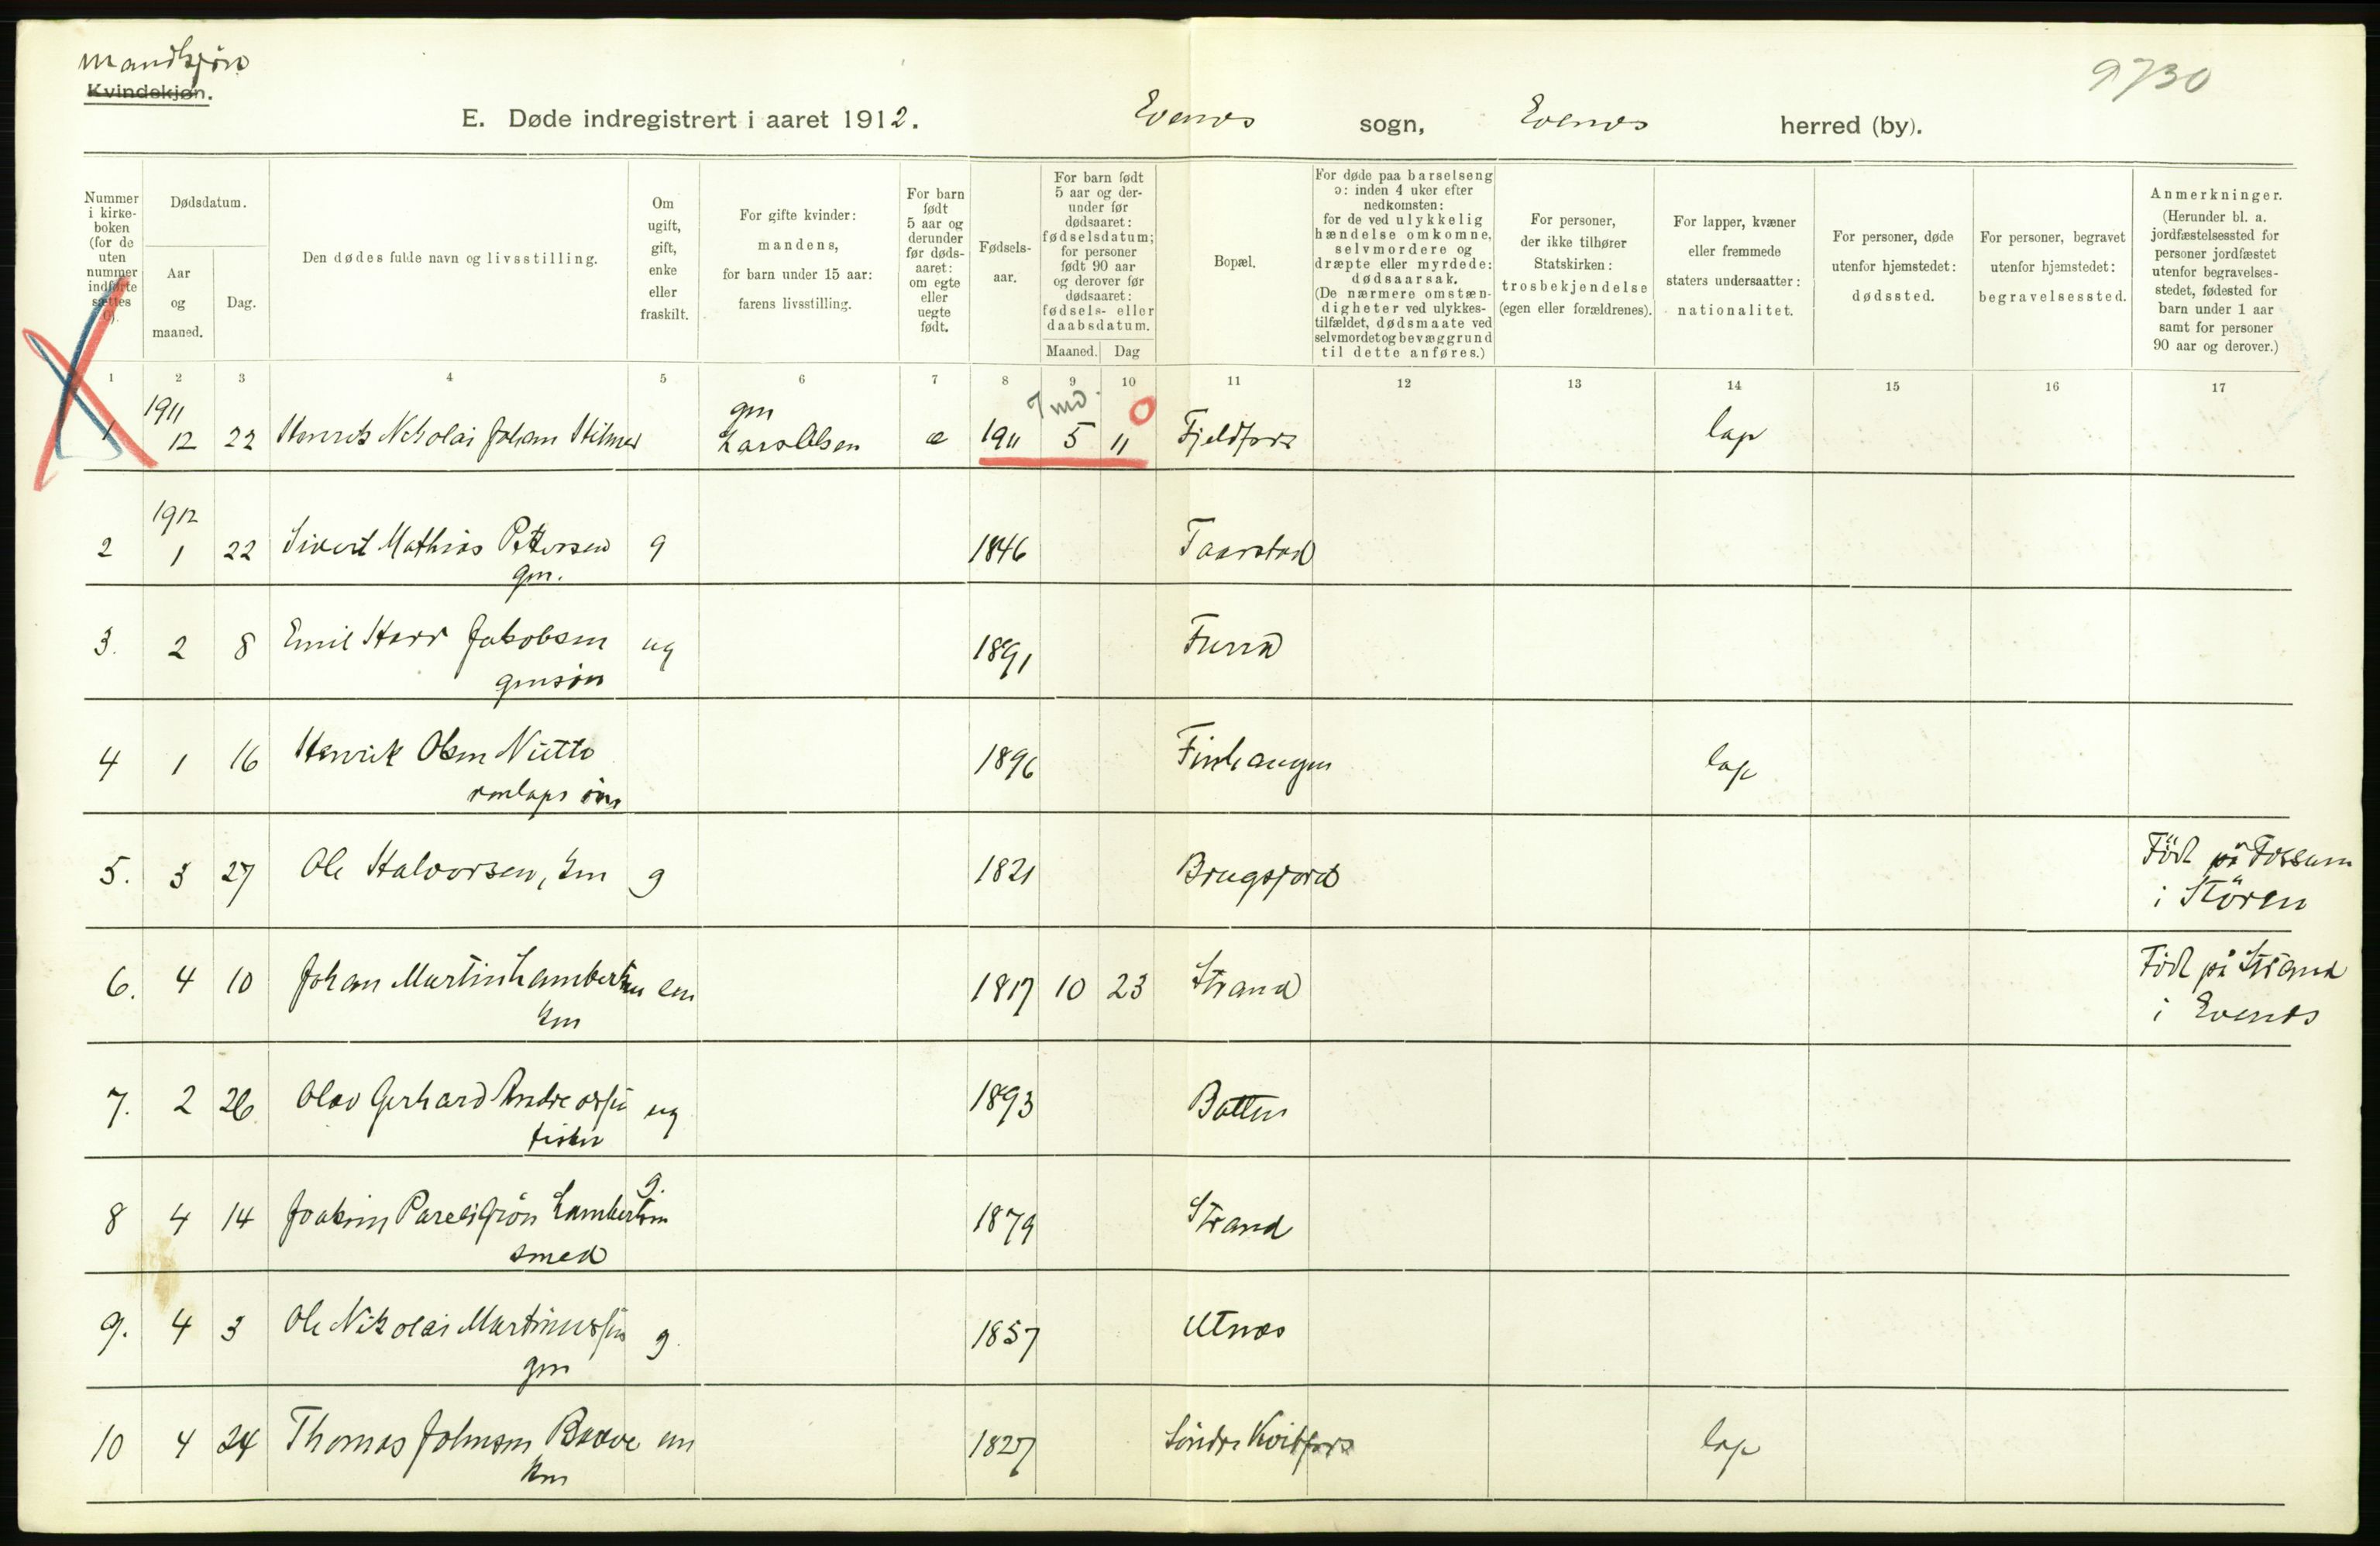 Mandkjøn
Kvindekjøn.
9730
E. Døde indregistrert i aaret 1912. Evenes sogn, Evenes herred (by).
Nummer i kirke-boken (for de uten nummer indførte sættes 0).
Dødsdatum.
Aar og maaned.
Dag.
Den dødes fulde navn og livsstilling.
Om ugift, gift, enke eller fraskilt.
For gifte kvinder: mandens, for barn under 15 aar: farens livsstilling.
For barn født 5 aar og derunder før døds-aaret: om egte eller uegte født.
Fødsels-aar.
For barn født 5 aar og der-under før dødsaaret: fødselsdatum; for personer født 90 aar og derover før dødsaaret: fødsels- eller daabsdatum.
Maaned. Dag
Bopæl.
For døde paa barselseng ɔ: inden 4 uker efter nedkomsten: for de ved ulykkelig hændelse omkomne, selvmordere og dræpte eller myrdede: dødsaarsak. (De nærmere omstæn-digheter ved ulykkes-tilfældet, dødsmaate ved selvmordet og bevæggrund til dette anføres.)
For personer, der ikke tilhører Statskirken: trosbekjendelse (egen eller forældrenes).
For lapper, kvæner eller fremmede staters undersaatter: nationalitet.
For personer, døde utenfor hjemstedet: dødssted.
For personer, begravet utenfor hjemstedet: begravelsessted.
Anmerkninger. (Herunder bl. a. jordfæstelsessted for personer jordfæstet utenfor begravelses-stedet, fødested for barn under 1 aar samt for personer 90 aar og derover.)
1 2 3 4 5 6 7 8 9 10 11 12 13 14 15 16 17
1911 gm 7 md. 0
1 12 22 Henrik Nikolai Johan Hilmer Lars Olsen æ 1911 5 11 Fjeldfors lap
1912
2 1 22 Sivert Mathias Pettersen g 1846 Taarstad
gm.
3. 2 8 Emil Harr Jakobsen ug 1891 
gmsøn
4 1 16 Henrik Olsen Niitto 1896 lap
5. 3 27 Ole Halvorsen, km g 1821 Bougsfjord Född på Fossum
i Stören
6. 4 10 Johan Martin Lambertsen em 1817 10 23 Strand Född på Strand
km i Evenes
7. 2 26 Olav Gerhard Andreassen ug 1893 Botten
fisker
g.
8 4 14 Joakim Pareli Grøn Lambertsen 1879 Strand
smed
9. 4 3 Ole Nikolai Martinussen g. 1857 Utnes
gm
10 4 24 Thomas Johnsen em 1827 Søndre Kvitfors lap
km